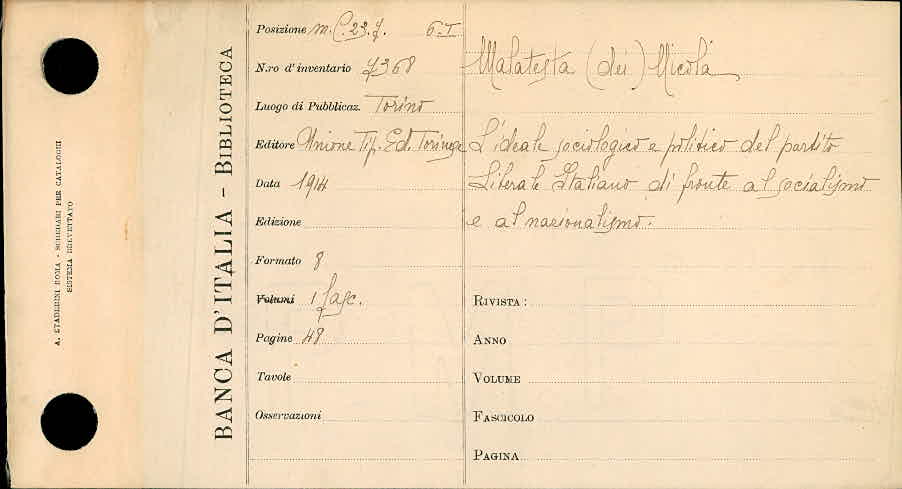 A. STADERINI ROMA - SCHEDARI PER CATALOGHI
SISTEMA BREVETTATO
BANCA D'ITALIA - BIBLIOTECA
Posizione m. C. 23. 7. 6-I
N.ro d'inventario 7368
Luogo di Pubblicaz. Torino
Editore Unione Tip. Ed. Torinese
Data 1914
Edizione
Formato 8
Volumi 1 fasc.
Pagine 48
Tavole
Osservazioni
Malatesta (dei) Nicola
L'ideale sociologico e politico del partito
Liberale Italiano di fronte al socialismo
e al nazionalismo.
RIVISTA:
ANNO
VOLUME
FASCICOLO
PAGINA